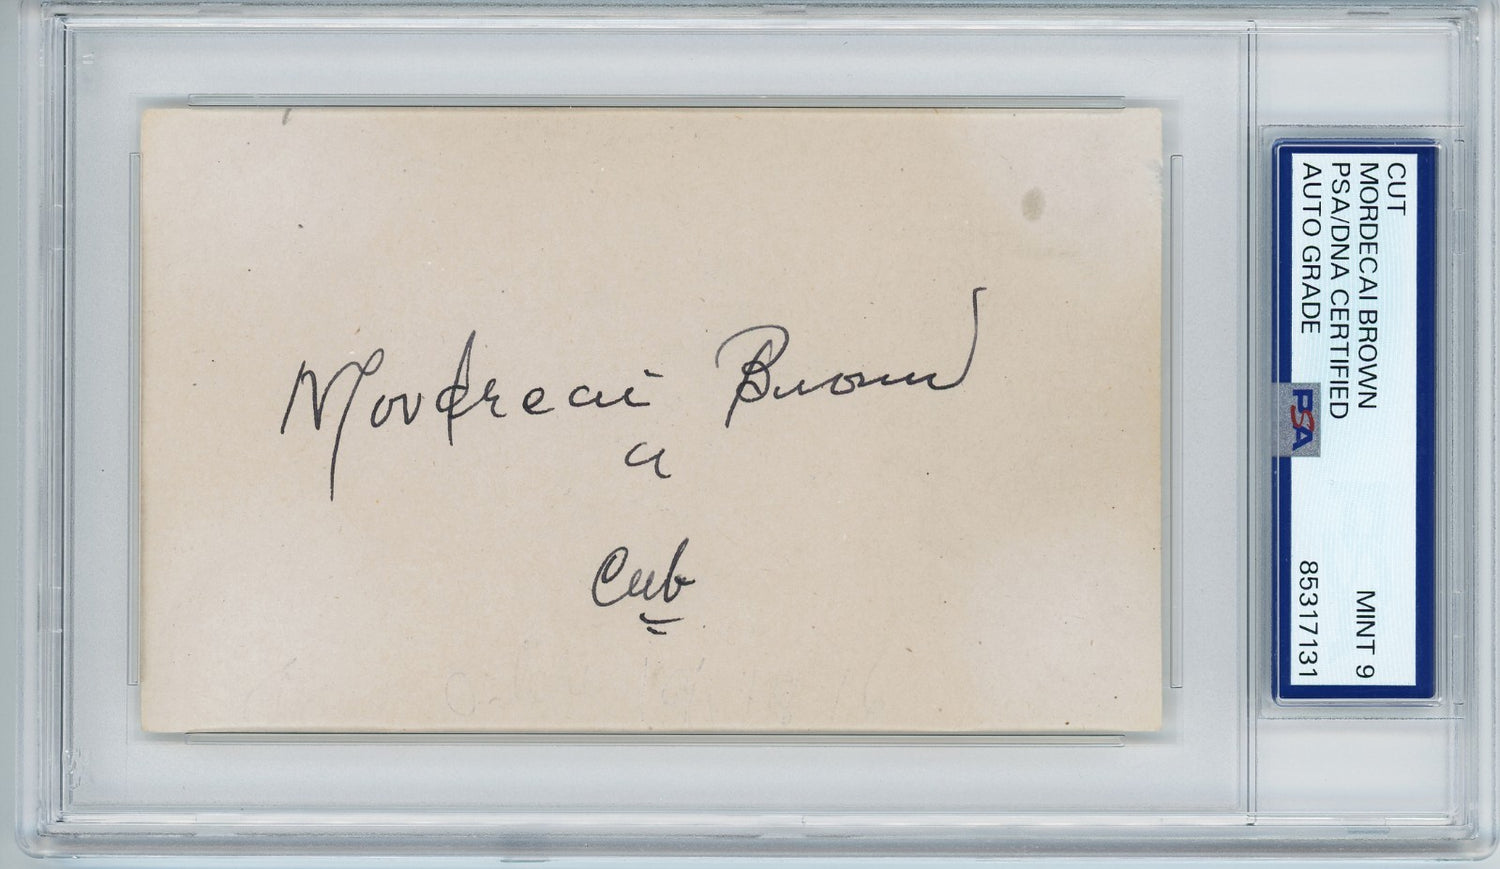 Mordecai Brown
a
Cub
CUT
MORDECAI BROWN
PSA/DNA CERTIFIED
AUTO GRADE
MINT 9
PSA
85317131